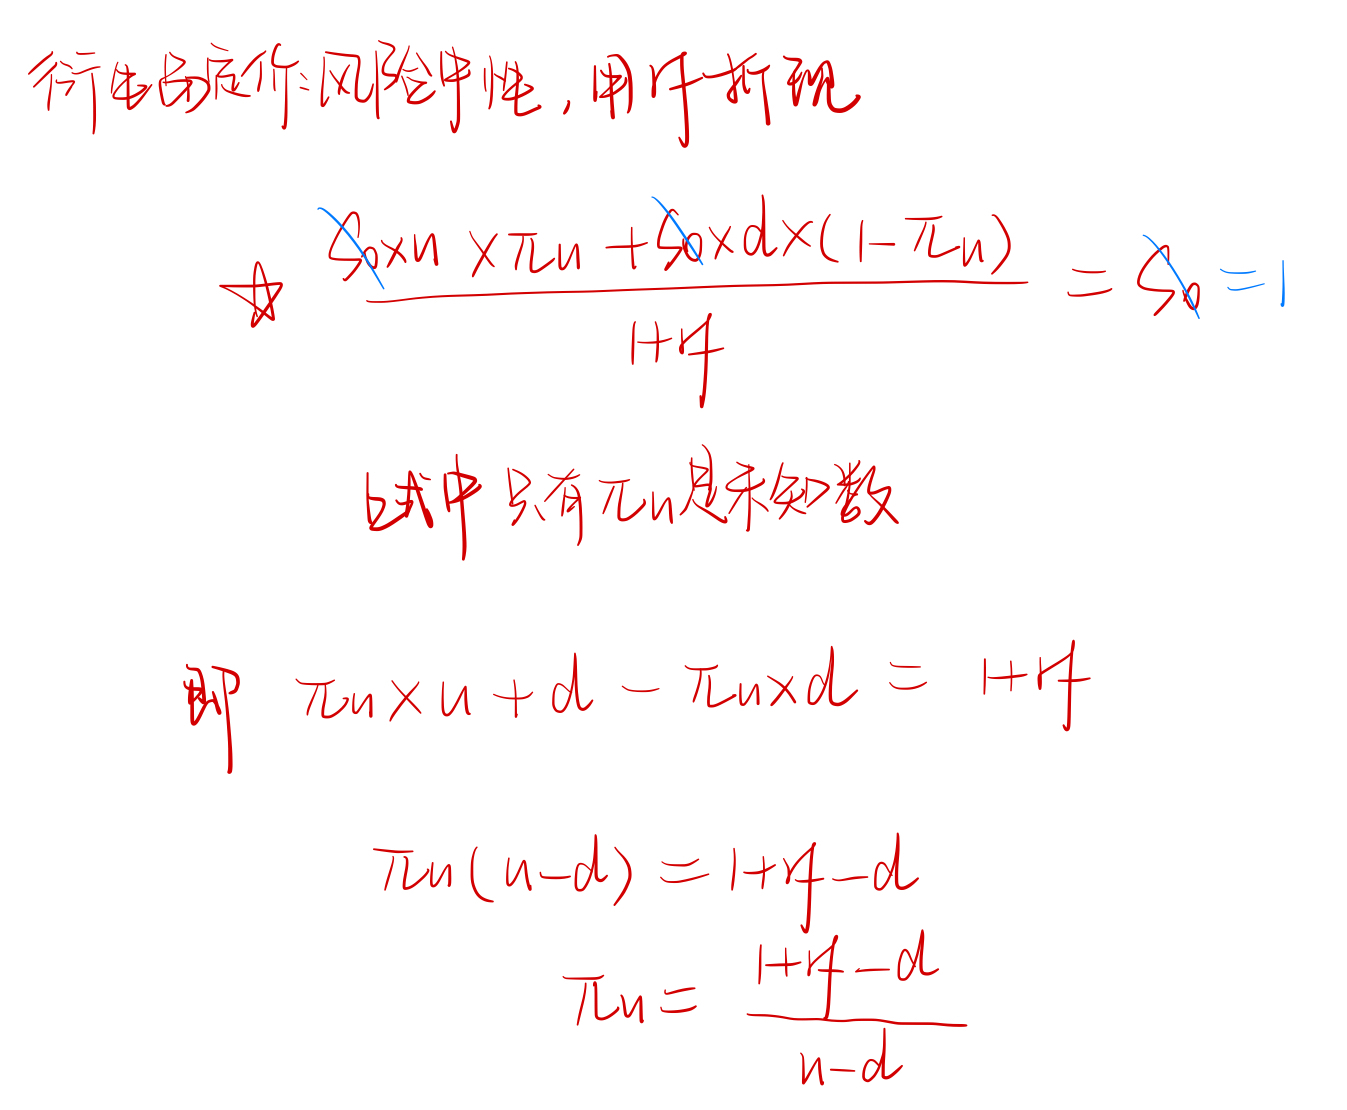 衍生品定价:风险中性,用rf折现
☆ (S₀×u×πu+S₀×d×(1-πu))/(1+rf) = S₀ = 1
式中只有πu是未知数
即 πu×u+d-πu×d=1+rf
πu(u-d)=1+rf-d
πu=(1+rf-d)/(u-d)